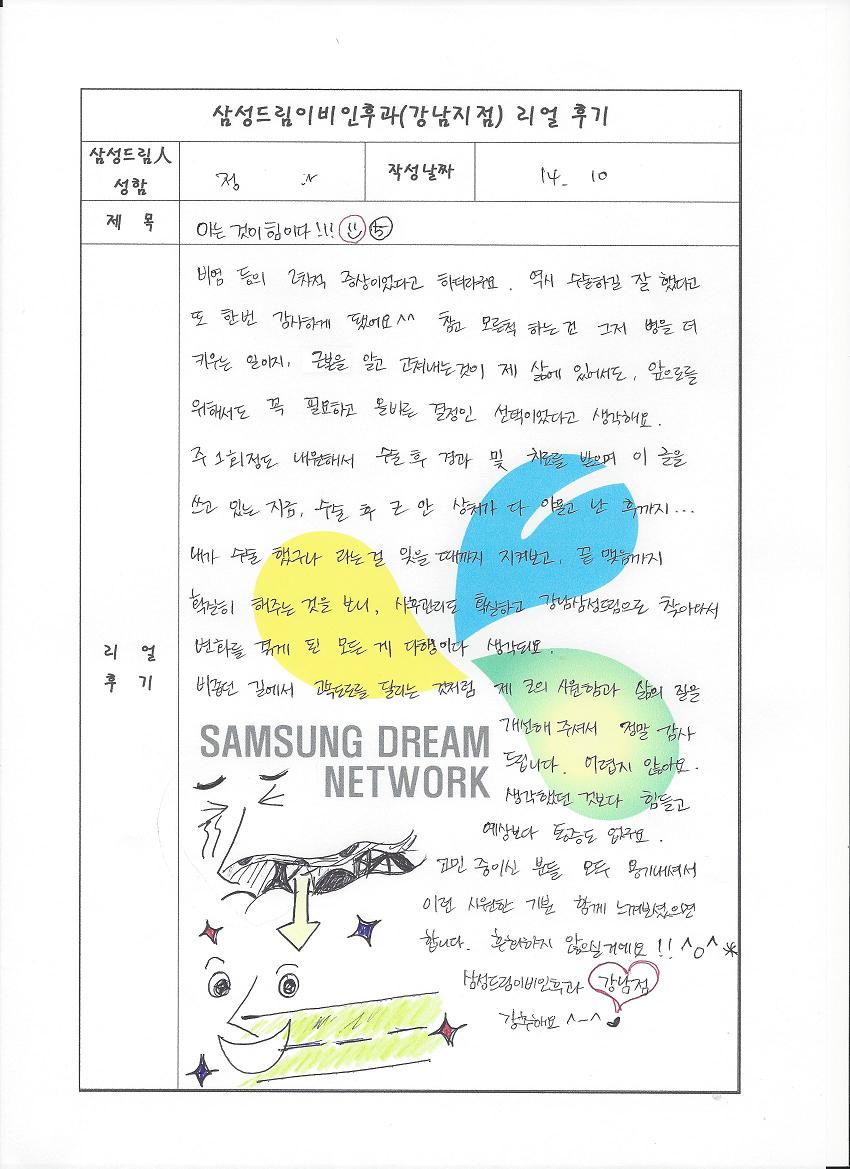 삼성드림이비인후과(강남지점) 리얼 후기
삼성드림人
성함
정
작성날짜
14. 10
제 목
아는 것이 힘이다!!!
리 얼
후 기
비염 등의 2차적 증상이었다고 하더라구요. 역시 수술하길 잘 했다고
또 한번 감사하게 됐어요^^ 참고 모른척 하는건 그저 병을 더
키우는 일이지, 근본을 알고 고쳐내는것이 제 삶에 있어서도, 앞으로를
위해서도 꼭 필요하고 올바른 결정인 선택이었다고 생각해요.
주 1회정도 내원해서 수술 후 경과 및 치료를 받으며 이 글을
쓰고 있는 지금, 수술 후 코 안 상처가 다 아물고 난 후까지...
내가 수술 했구나 라는걸 잊을 때까지 지켜보고, 끝 맺음까지
확실히 해주는 것을 보니, 사후관리도 확실하고 강남삼성드림으로 찾아와서
변화를 겪게 된 모든 게 다행이다 생각되요.
비좁던 길에서 고속도로를 달리는 것처럼 제 코의 시원함과 삶의 질을
개선해 주셔서 정말 감사
드립니다. 어렵지 않아요.
생각했던 것보다 힘들고
예상보다 통증도 없구요.
고민 중이신 분들 모두 용기내셔서
이런 시원한 기분 함께 느껴보셨으면
합니다. 후회하지 않으실거에요!! ^o^*
삼성드림이비인후과 강남점
강추해요 ^-^
SAMSUNG DREAM
NETWORK